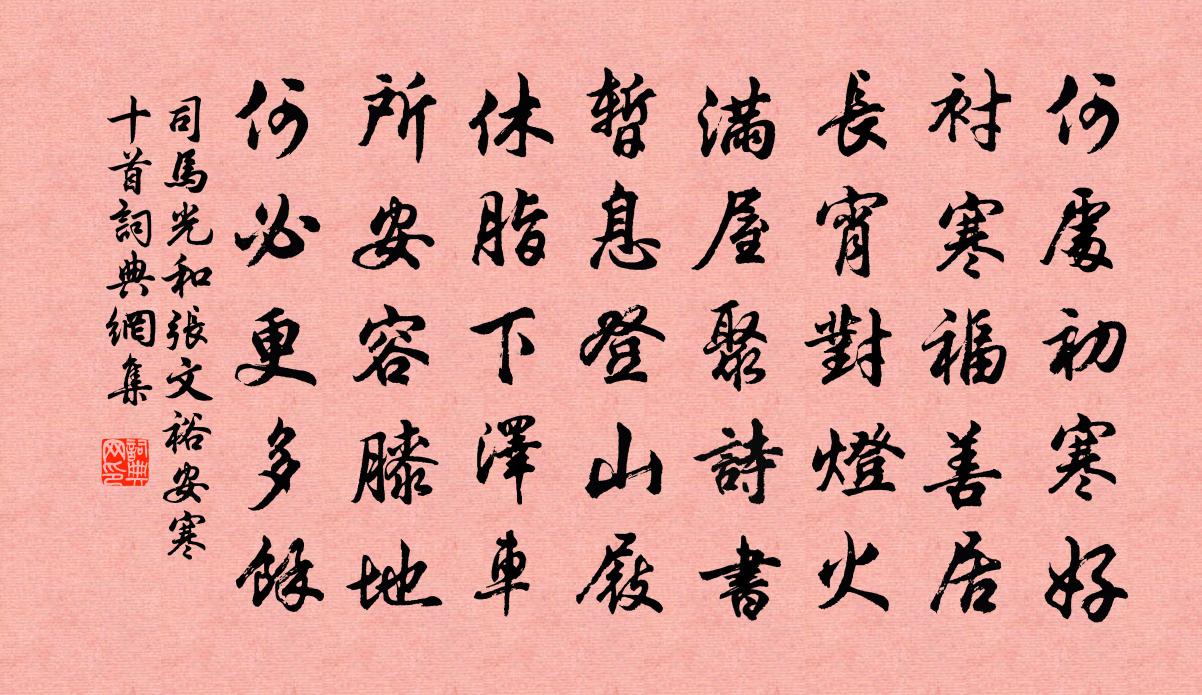 何處初寒好
衬寒福善居
長宵對燈火
滿屋聚詩書
暫息登山屐
休脂下澤車
所安容膝地
何必更多餘
司馬光和張文裕安寒
十首詞典網集
詞典
网印